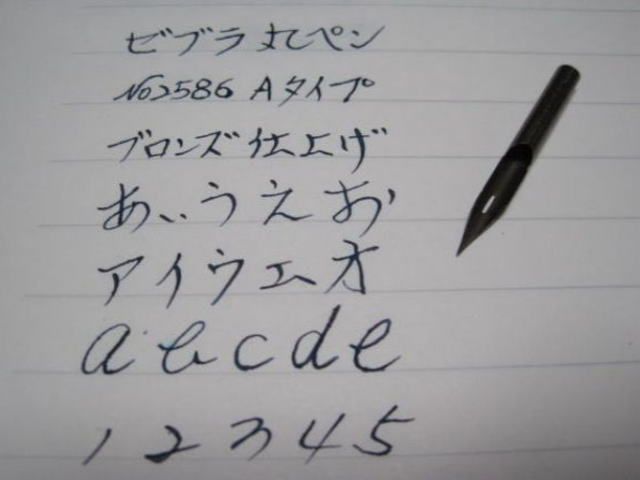 ゼブラ丸ペン
No2586 Aタイプ
ブロンズ仕上げ
あいうえお
アイウエオ
abcde
12345